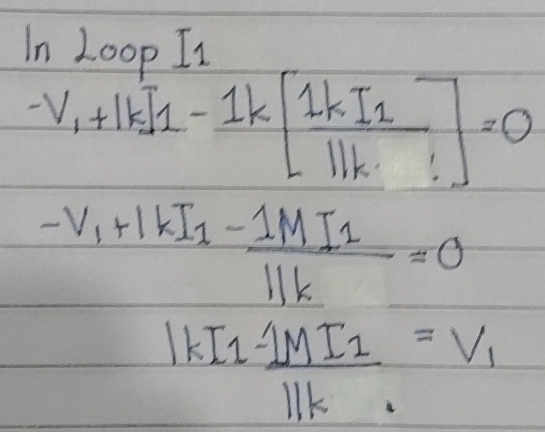 In Loop I1
-V1+1kI1 - 1k[1kI1/11k] =0
-V1+1kI1 - 1MI1/11k =0
1kI1-1MI1/11k = V1